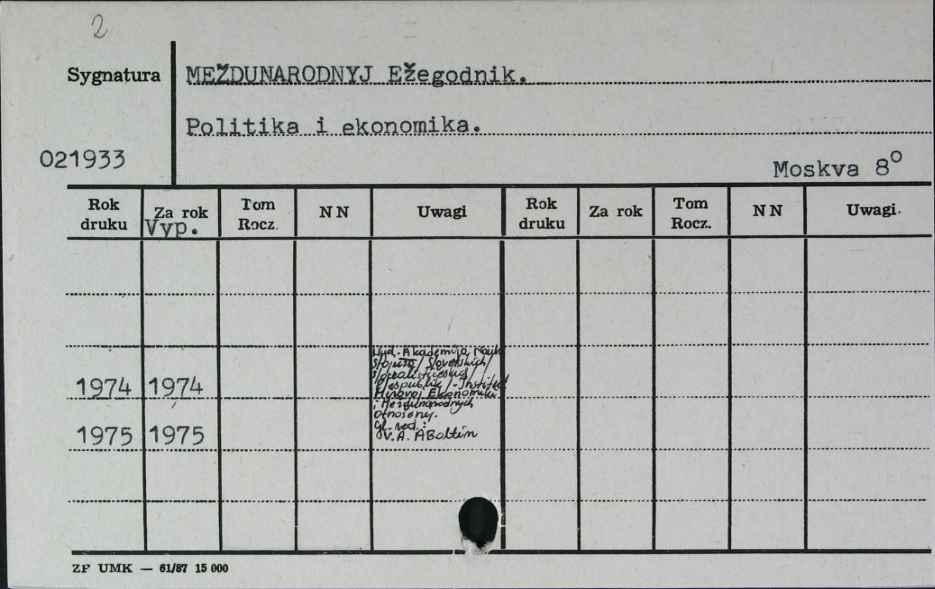 2
Sygnatura
MEŽDUNARODNYJ Ežegodnik.
Politika i ekonomika.
021933
Moskva 8⁰
Rok druku
Za rok
Vyp.
Tom Rocz.
NN
Uwagi
Rok druku
Za rok
Tom Rocz.
NN
Uwagi.
Wyd. Akademija Nauk
Respublik/-Institut
Mirovoj Ekonomiki
i Meždunarodnych
1974 1974
gl. red.:
V.A. ABoltin
1975 1975
ZF UMK — 61/87 15 000